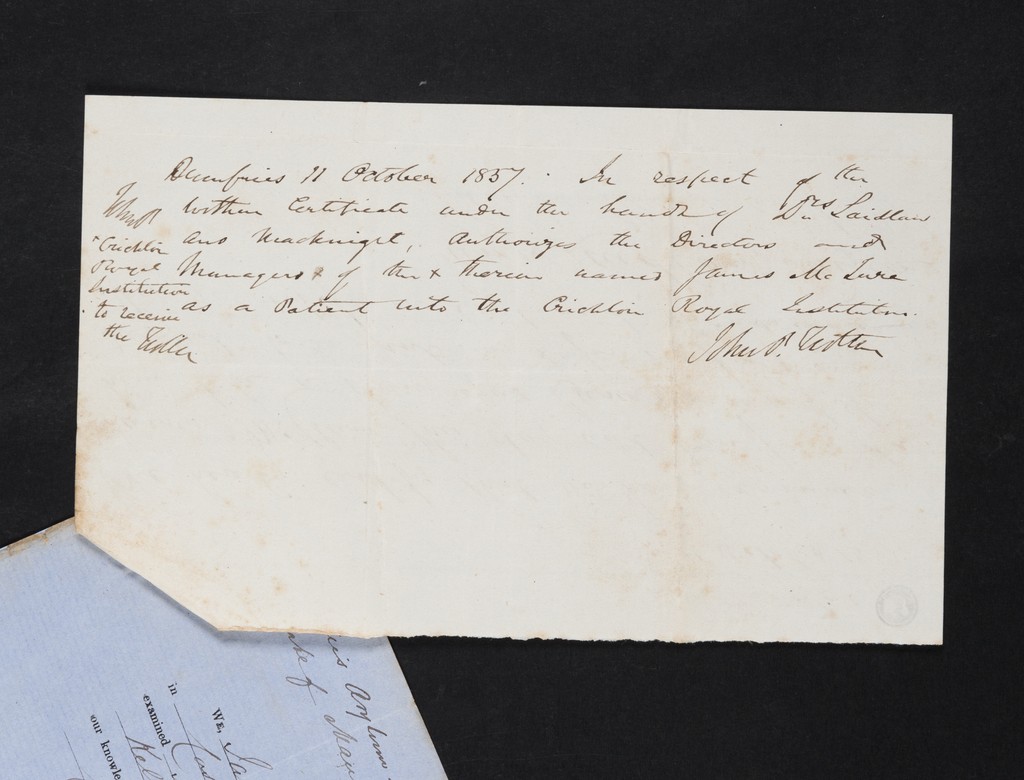 Dumfries 11 October 1857. In respect of the
within Certificate under the hands of Drs Laidlaw
and Macknight, Authorizes the Directors and
Managers x of the x therein named James McLure
as a Patient into the Crichton Royal Institution.
John P. Trotter
John P.
x Crichton
Royal
Institution
to receive
the Trotter
Asylum
in
WE,
examined
our knowle